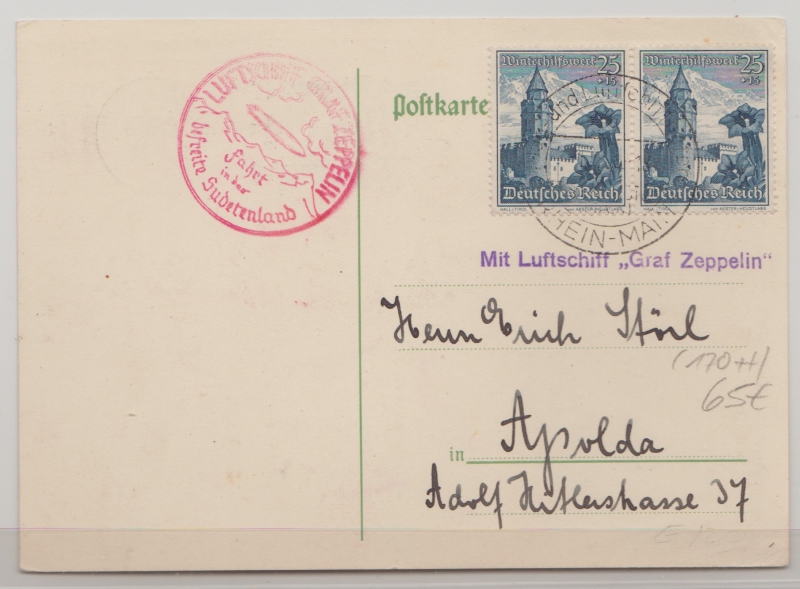 LUFTSCHIFF GRAF ZEPPELIN
Fahrt
in das
befreite Sudetenland
Postkarte
Winterhilfswerk 25
+15
Deutsches Reich
Winterhilfswerk 25
+15
Deutsches Reich
und Luft
RHEIN-MAIN
Mit Luftschiff „Graf Zeppelin"
Herrn Erich Störl
(170++)
65€
in Apolda
Adolf Hitlerstrasse 37